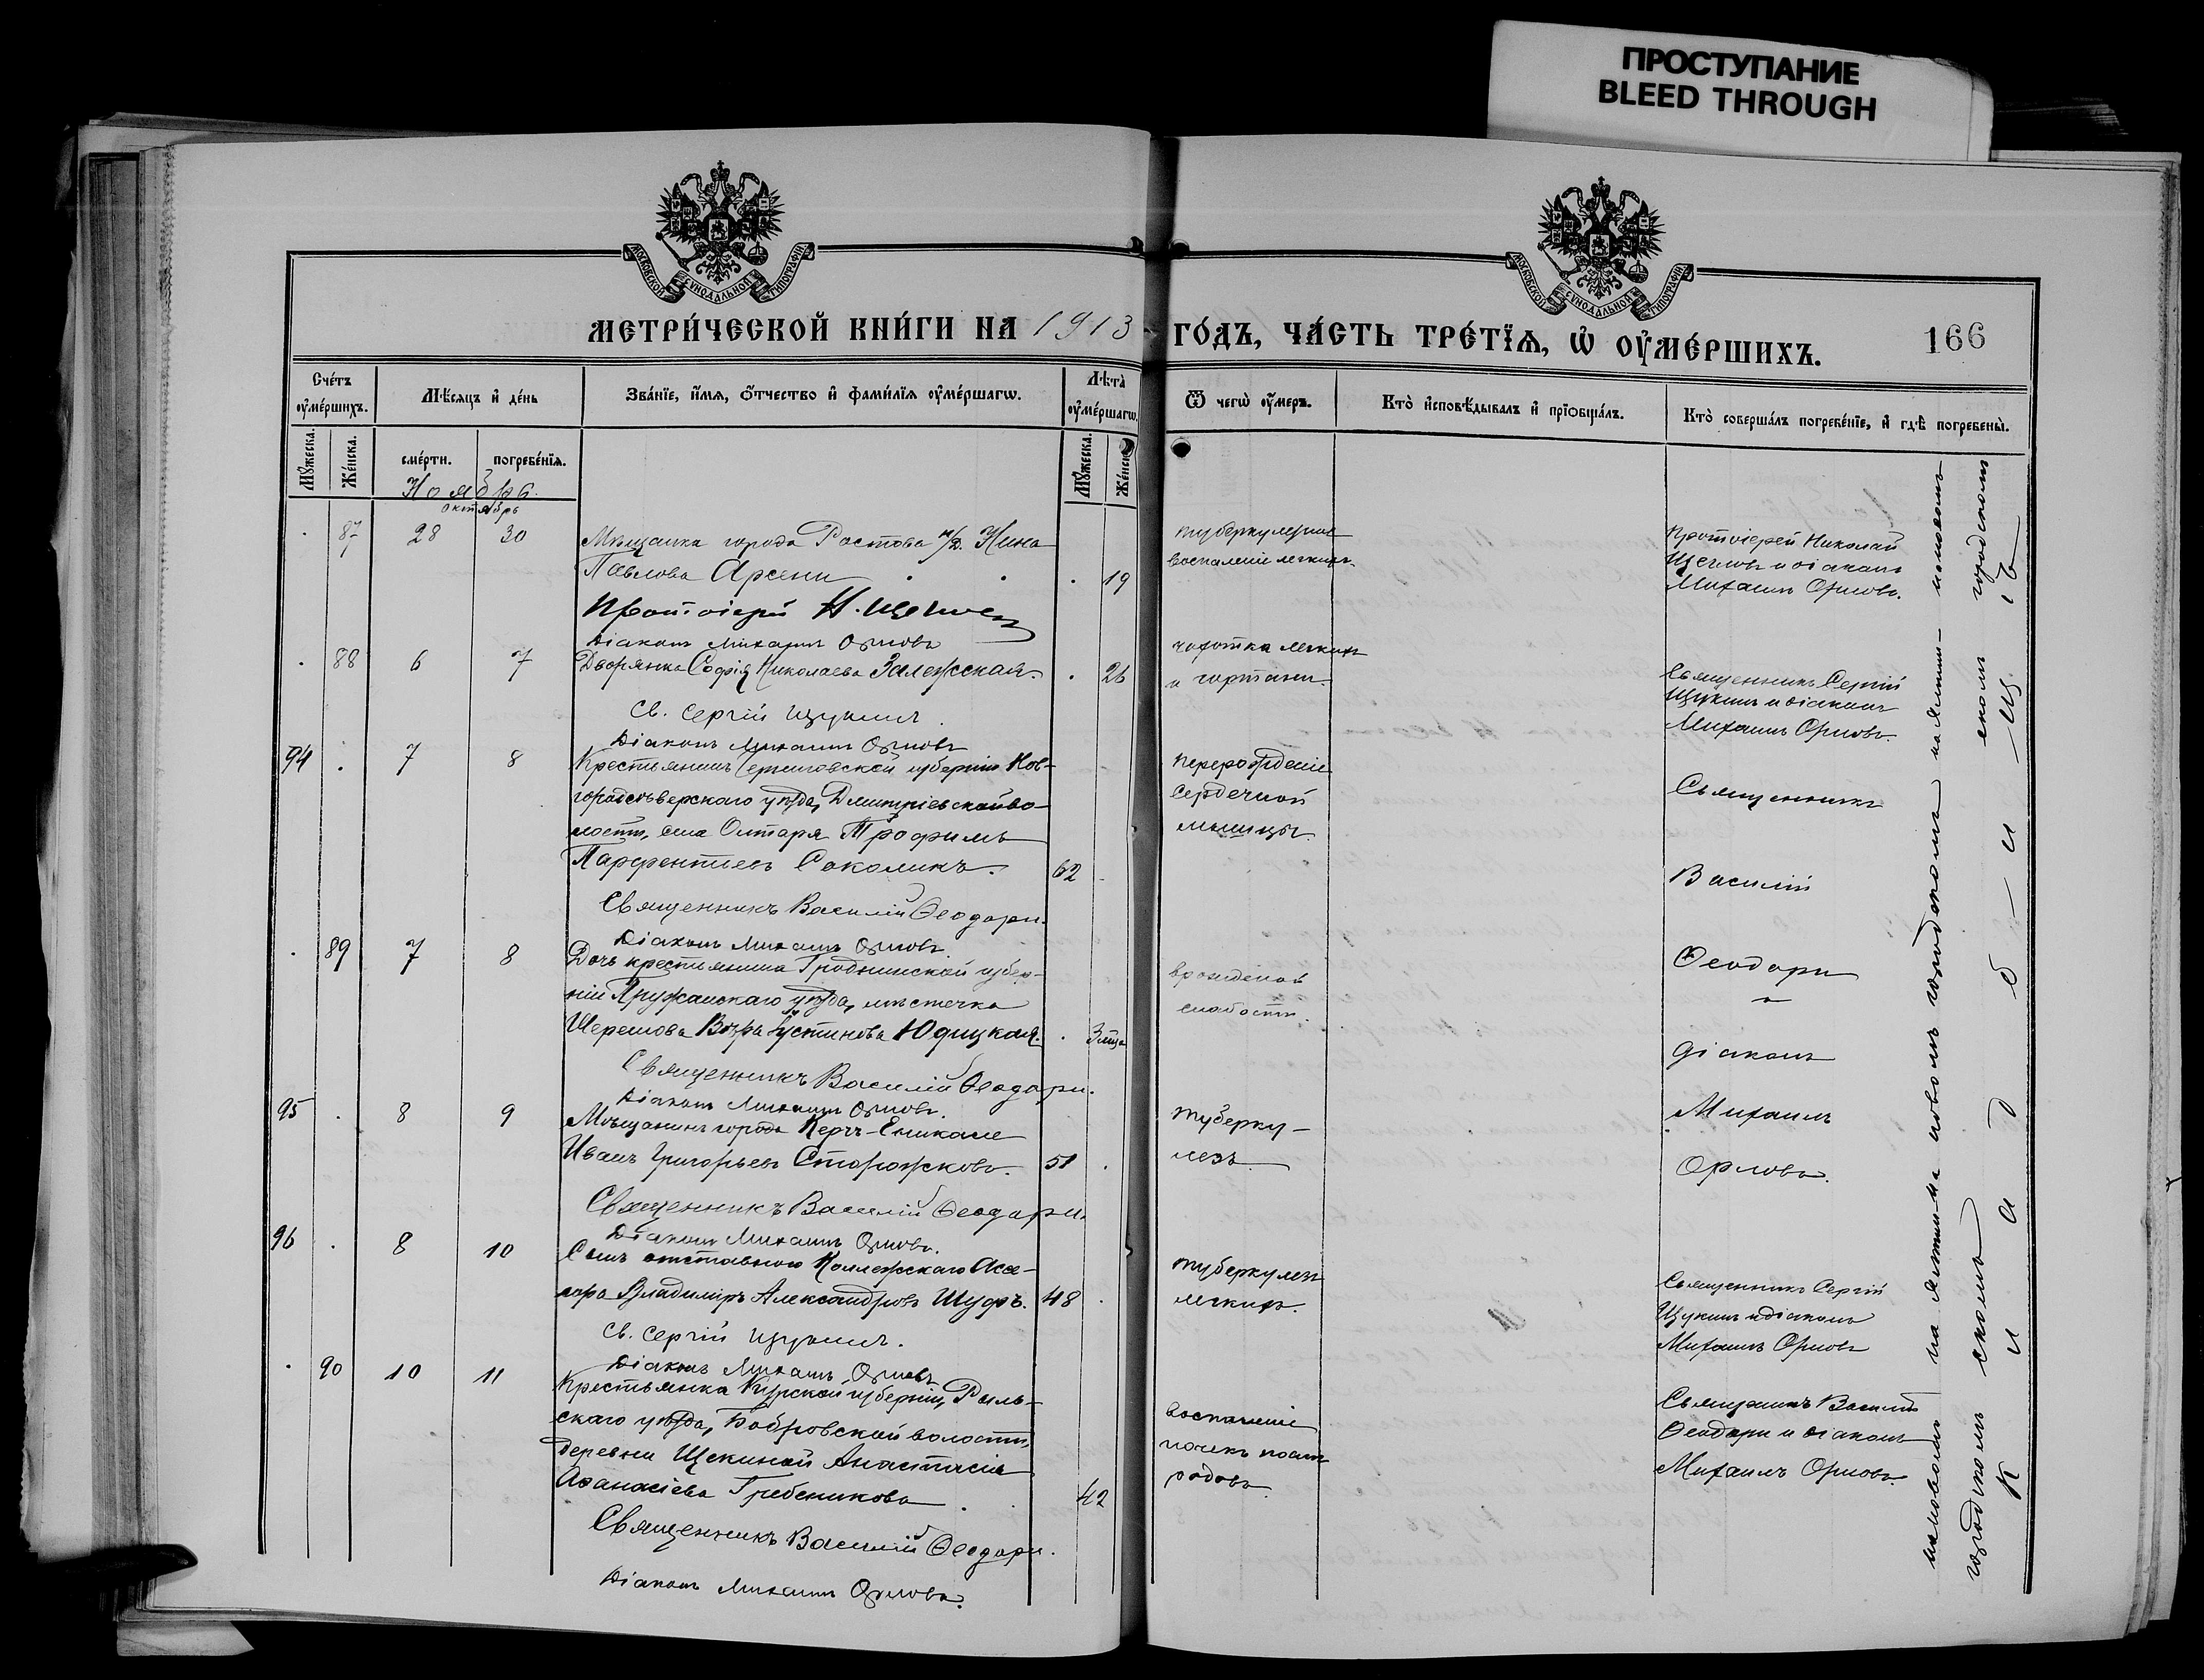 ПРОСТУПАНИЕ
BLEED THROUGH
МОСКОВСКОЙ СУНОДАЛЬНОЙ ТИПОГРАФІИ
МОСКОВСКОЙ СУНОДАЛЬНОЙ ТИПОГРАФІИ
МЕТРИ́ЧЕСКОЙ КНИ́ГИ НА 1913 ГО́ДЪ, ЧА́СТЬ ТРЕ́ТЇѦ, Ѡ҆ ОУ҆МЕ́РШИХЪ.
166
Сче́тъ оу҆ме́ршихъ.
Мѣ́сяцъ и҆ де́нь
Зва́нїе, и҆́мя, о҆́тчество и҆ фами́лїя оу҆ме́ршагѡ.
Лѣ́та оу҆ме́ршагѡ.
Ѿ чегѡ̀ оу҆́меръ.
Кто̀ и҆сповѣ́дывалъ и҆ прїѻбща́лъ.
Кто̀ соверша́лъ погребе́нїе, и҆ гдѣ̀ погребены̀.
Мꙋ́жеска.
Же́нска.
сме́рти.
погребе́нїя.
Мꙋ́жеска.
Же́нска.
Ноябрь
октябрь
87 28 30 Мѣщанка города Ростова н/Д. Нина
Павлова Арсени 19
Протоіерей Н. Щегловъ
Діаконъ Михаилъ Орловъ
туберкулезное
воспаленіе легкихъ.
Протоіерей Николай
Щегловъ и діаконъ
Михаилъ Орловъ.
88 6 7 Дворянка Софія Николаева Залежская. 26
Св. Сергій Щукинъ.
Діаконъ Михаилъ Орловъ
чахотка легкихъ
и гортани.
Священникъ Сергій
Щукинъ и діаконъ
Михаилъ Орловъ.
94 7 8 Крестьянинъ Черниговской губерніи Нов-
городсѣверскаго уѣзда, Дмитріевской во-
лости, села Олтаря Трофимъ
Парфентьевъ Соколикъ. 62
Священникъ Василій Ѳеодори.
Діаконъ Михаилъ Орловъ.
перерожденіе
сердечной
мышцы.
Священникъ
Василій
Ѳеодори
и
діаконъ
Михаилъ
Орловъ.
89 7 8 Дочь крестьянина Гродненской губер-
ніи Пружанскаго уѣзда, мѣстечка
Шерешова Вѣра Іустинова Юдицкая. 3 мѣса
Священникъ Василій Ѳеодори.
Діаконъ Михаилъ Орловъ.
врожденой
слабости.
95 8 9 Мѣщанинъ города Керчь-Еникале
Иванъ Григорьевъ Сторожковъ. 51
Священникъ Василій Ѳеодори.
Діаконъ Михаилъ Орловъ.
туберку-
лезъ.
96 8 10 Сынъ отставного Коллежскаго Асе-
сора Владиміръ Александровъ Шуфъ. 48
Св. Сергій Щукинъ.
Діаконъ Михаилъ Орловъ
туберкулезъ
легкихъ.
Священникъ Сергій
Щукинъ и діаконъ
Михаилъ Орловъ
90 10 11 Крестьянка Курской губерніи, Рыль-
скаго уѣзда, Бобровской волости,
деревни Щекиной Анастасія
Аѳанасіева Гребенникова 42
Священникъ Василій Ѳеодори.
Діаконъ Михаилъ Орловъ.
воспаленіе
почекъ послѣ
родовъ.
Священникъ Василій
Ѳеодори и діаконъ
Михаилъ Орловъ.
городскомъ
к л а д б и щ ѣ